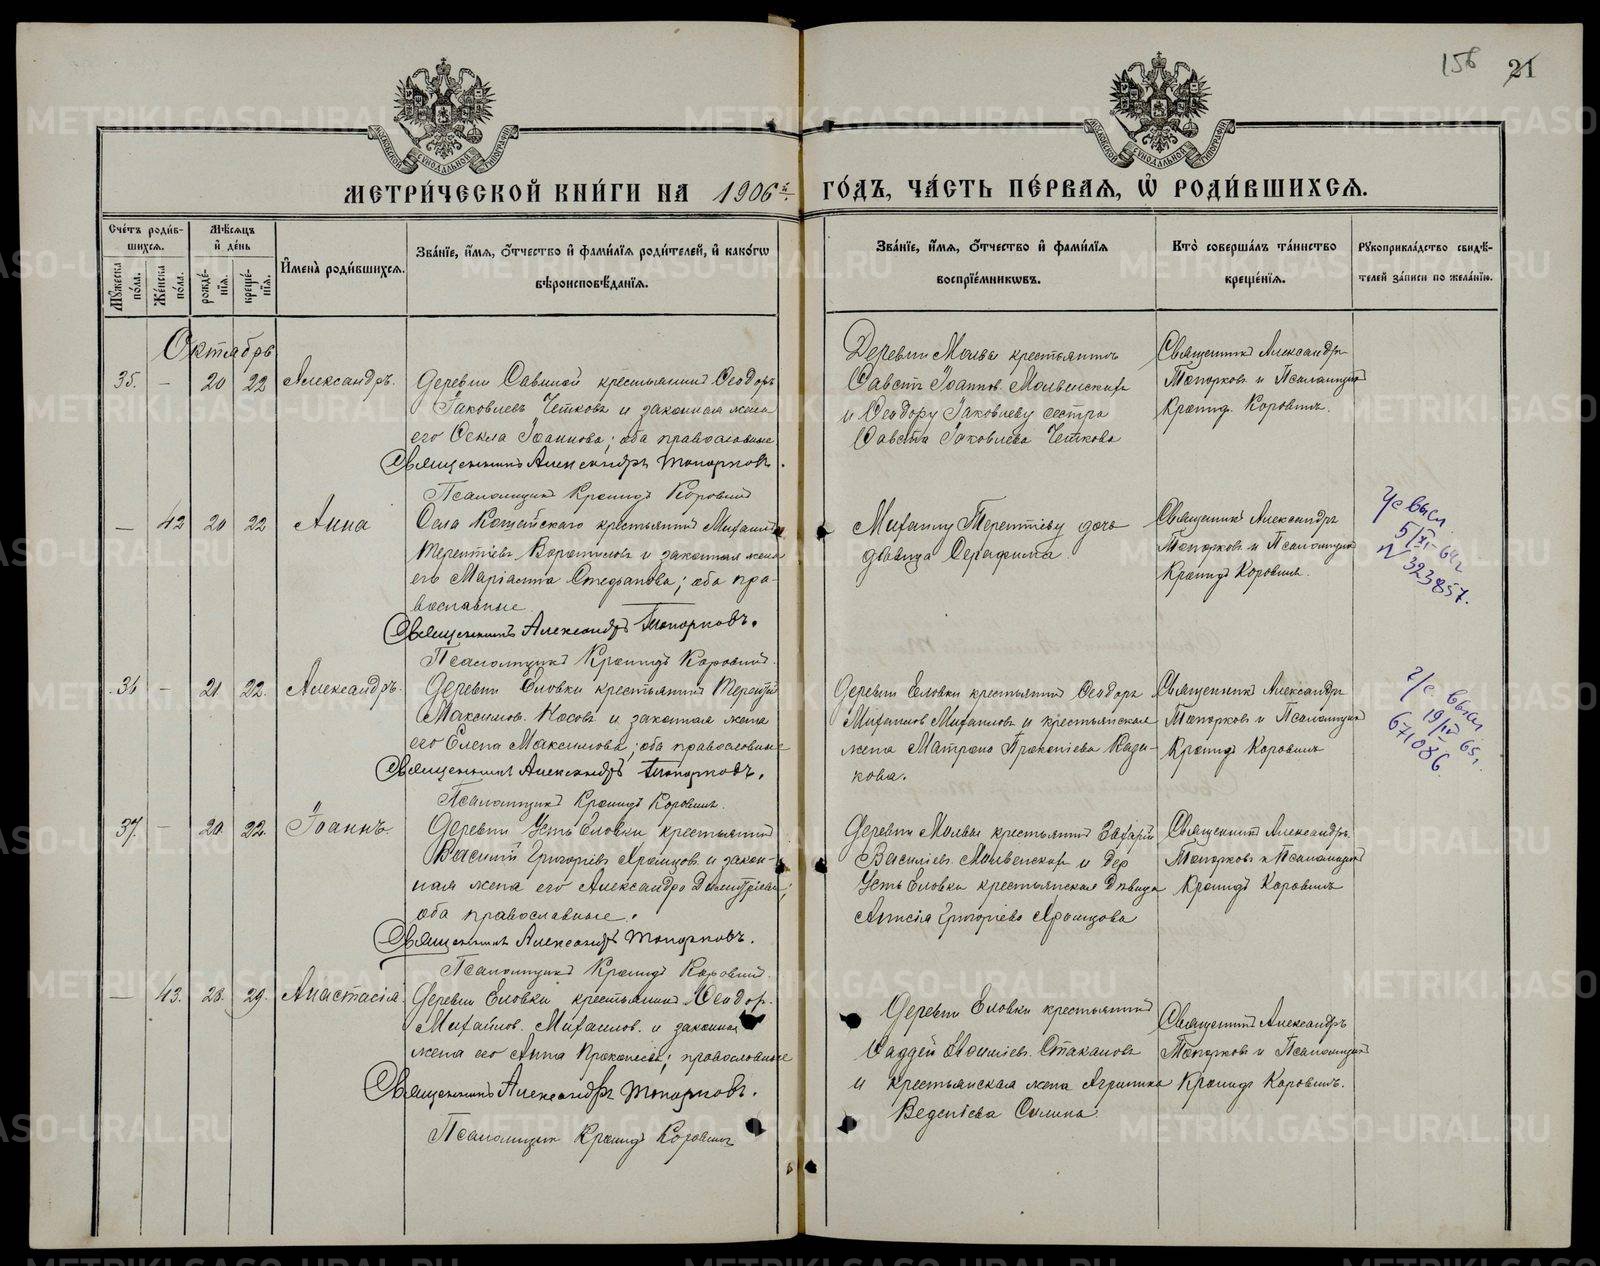 156 21
МЕТРИ́ЧЕСКОЙ КНИ́ГИ НА 1906й ГО́ДЪ, ЧА́СТЬ ПЕ́РВАЯ, Ѿ РОДИ́ВШИХСЯ.
Сче́тъ роди́вшихся.
Му́жеска по́ла.
Же́нска по́ла.
Мѣ́сяцъ и́ де́нь
рожде́нїя.
креще́нїя.
И҆мена̀ роди́вшихся.
Зва́нїе, и҆́мя, о҆́тчество и҆ фами́лїя роди́телей, и҆ како́гѡ
вѣроисповѣ́данїя.
Зва́нїе, и҆́мя, о҆́тчество и҆ фами́лїя
воспрїе́мникѡвъ.
Кто̀ соверша́лъ та́инство
креще́нїя.
Рꙋкоприкла́дство свидѣ́-
телей за́писи по жела́нїю.
Октябрь
35. — 20 22 Александръ.
Деревни Савиной крестьянинъ Ѳеодоръ
Іаковлевъ Четковъ и законная жена
его Ѳекла Іоаннова; оба православные
Священникъ Александръ Топорковъ.
Псаломщикъ Кронидъ Коровинъ
Деревни Молвы крестьянинъ
Савватій Іоаннов. Молвинскихъ
и Ѳеодору Іаковлеву сестра
Іаковлева Четкова
Священникъ Александръ
Топорковъ и Псаломщикъ
Кронид. Коровинъ.
— 42 20 22 Анна
Села Кошайскаго крестьянинъ Михаилъ
Терентіевъ и законная жена
его Маріанна Стефанова; оба пра-
вославные
Священникъ Александръ Топорковъ.
Псаломщикъ Кронидъ Коровинъ.
Михаилу Терентіеву дочь
дѣвица Серафима
Священникъ Александръ
Топорковъ и Псаломщикъ
Кронидъ Коровинъ.
Ч/с высл
5/XI-64г
N 323857.
36 — 21. 22. Александръ.
Деревни Еловки крестьянинъ Терентій
Максимов. Носовъ и законная жена
его Елена Максимова; оба православные
Священникъ Александръ Топорковъ.
Псаломщикъ Кронидъ Коровинъ.
Деревни Еловки крестьянинъ Ѳеодоръ
Михаилов Михаиловъ и крестьянская
жена Матрона Прокопіева Каза-
кова.
Священникъ Александръ
Топорковъ и Псаломщикъ
Кронидъ Коровинъ
ч/с. высл
19/IV 65г.
671086.
37. — 20. 22. Іоаннъ
Деревни Усть Еловки крестьянинъ
Василій Григоріевъ Храмцовъ и закон-
ная жена его Александра Димитріева;
оба православные.
Священникъ Александръ Топорковъ.
Псаломщикъ Кронидъ Коровинъ.
Деревни Молвы крестьянинъ Захарій
Василіев. Молвинскихъ и Дер
Усть Еловки крестьянская дѣвица
Анисія Григоріева Храмцова
Священникъ Александръ
Топорковъ и Псаломщикъ
Кронидъ Коровинъ
— 43. 28. 29. Анастасія
Деревни Еловки крестьянинъ Ѳеодор.
Михайлов. Михаилов. и законная
жена его Анна Прокопіева; православные
Священникъ Александръ Топорковъ.
Псаломщикъ Кронидъ Коровинъ
Деревни Еловки крестьянинъ
Ѳаддей Стакановъ
и крестьянская жена Агрипина
Веденіева Силина
Священникъ Александръ
Топорковъ и Псаломщикъ
Кронидъ Коровинъ.
METRIKI.GASO-URAL.RU